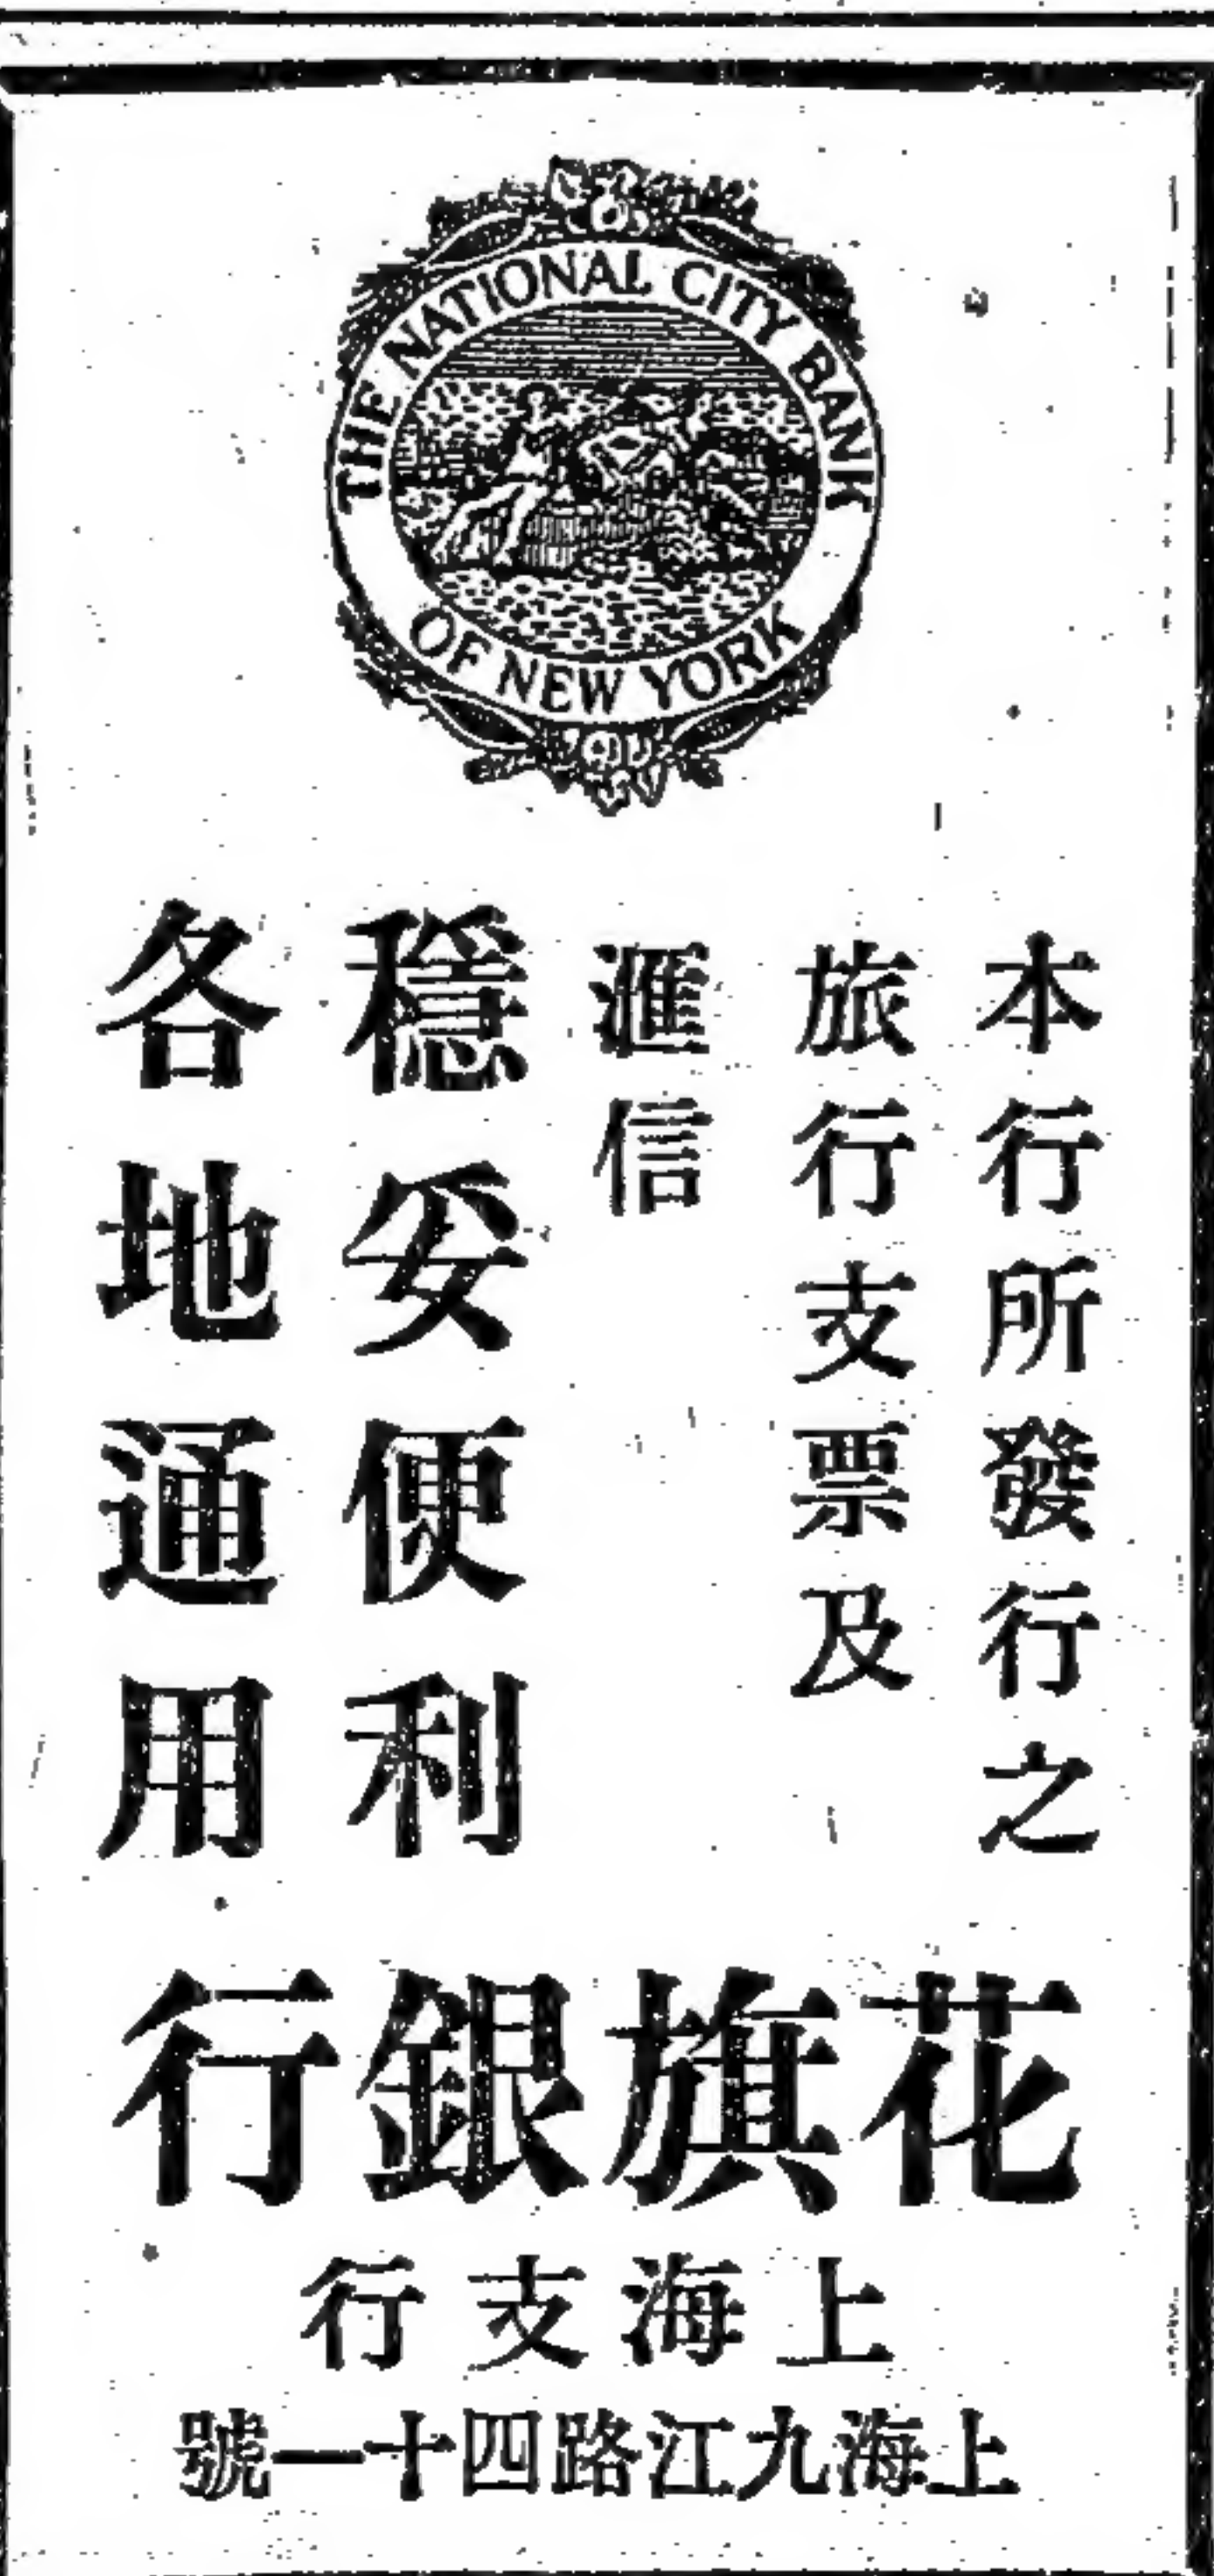 THE NATIONAL CITY BANK
OF NEW YORK
本行所發行之
旅行支票及
滙信
穩妥便利
各地通用
花旗銀行
上海支行
上海九江路四十一號